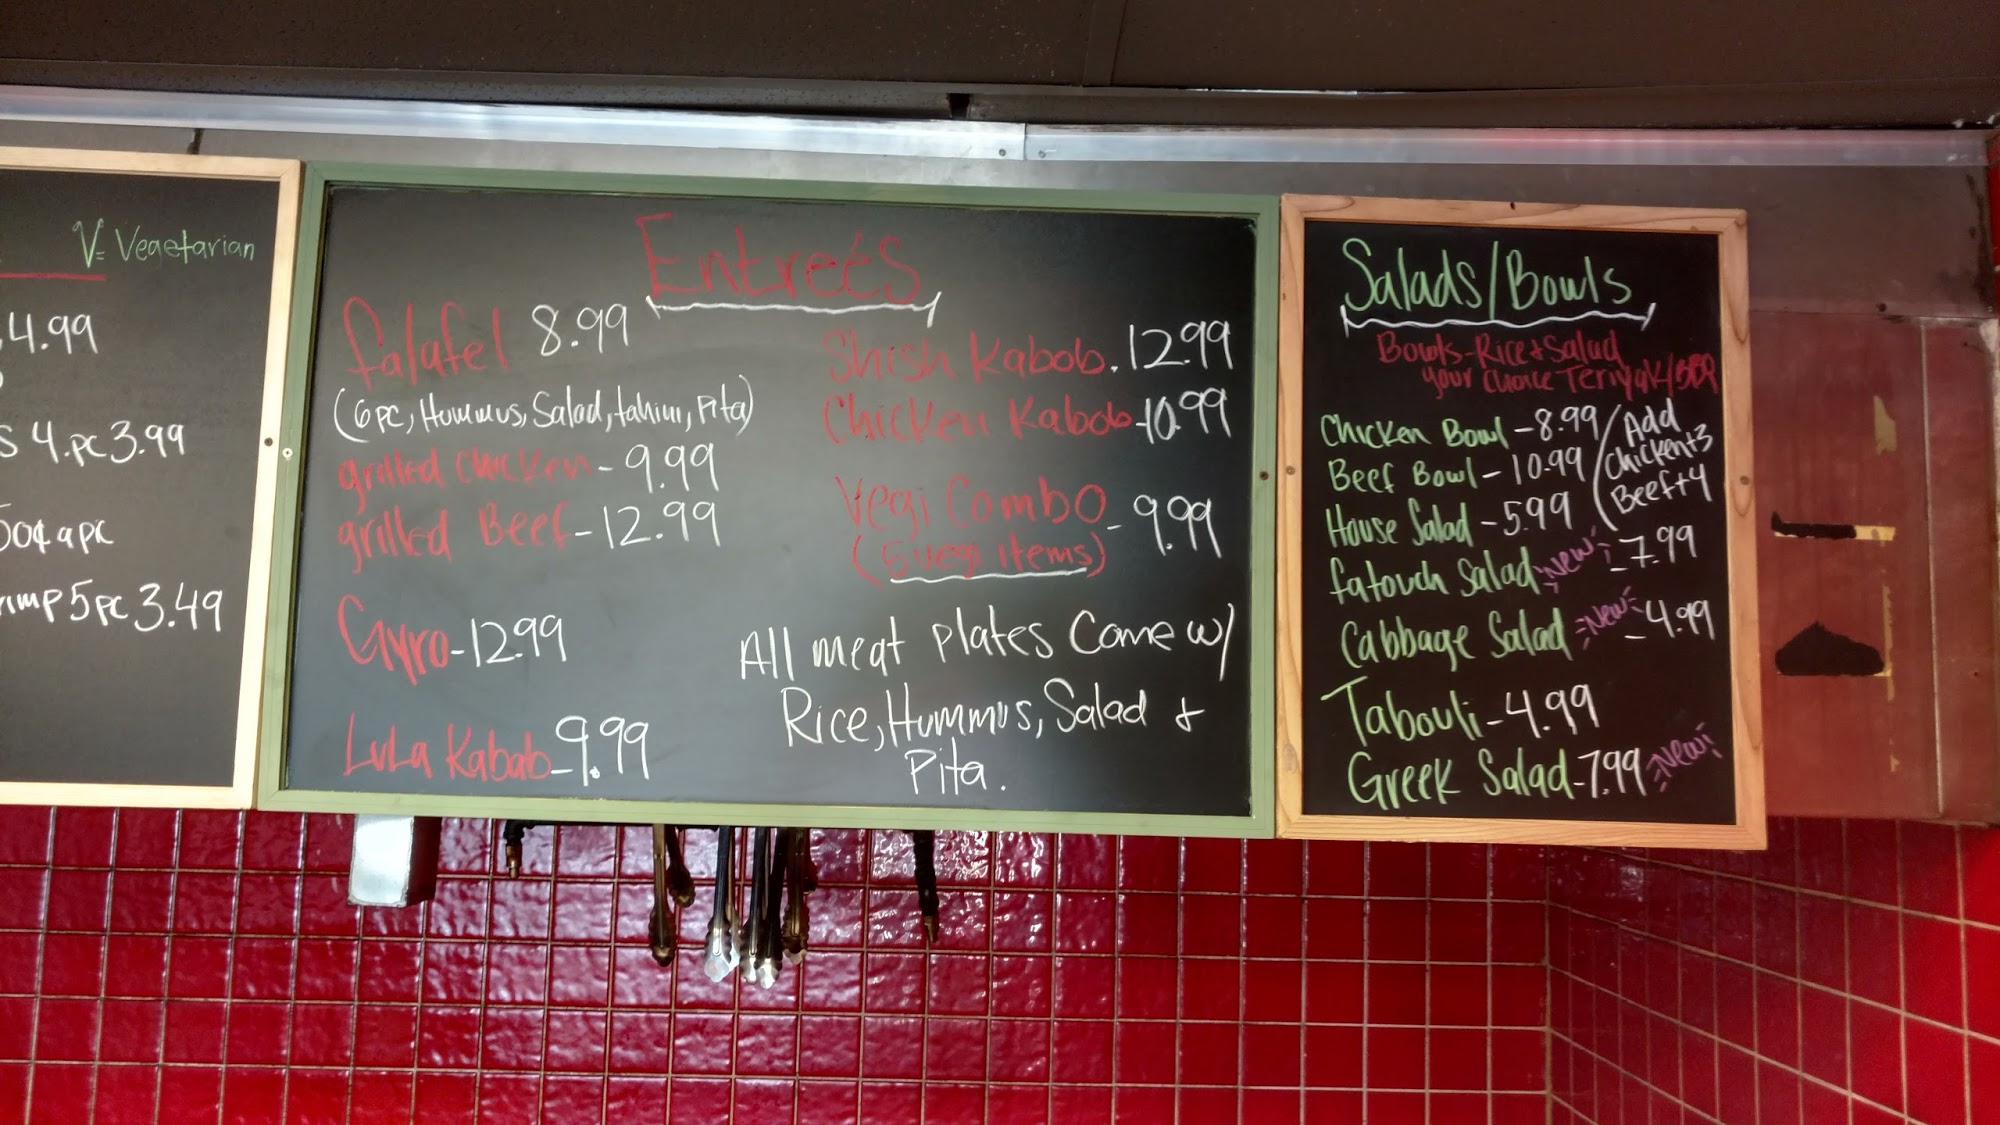 V= Vegetarian
4.99
S 4.pc 3.99
50¢ a pc
rimp 5pc 3.49
Entreés
falafel 8.99
(6pc, Hummus, Salad, tahini, Pita)
grilled chicken - 9.99
grilled Beef - 12.99
Gyro - 12.99
Lula Kabab - 9.99
Shish Kabob. 12.99
Chicken Kabob - 10.99
Vegi Combo - 9.99
(5 vegi items)
All meat plates Come w/
Rice, Hummus, Salad &
Pita.
Salads/Bowls
Bowls - Rice & Salad
your choice Teriyaki/BBQ
Chicken Bowl - 8.99
Beef Bowl - 10.99
House Salad - 5.99
Add
Chicken+3
Beef+4
fatouch Salad New! - 7.99
Cabbage Salad New - 4.99
Tabouli - 4.99
Greek Salad - 7.99 New!